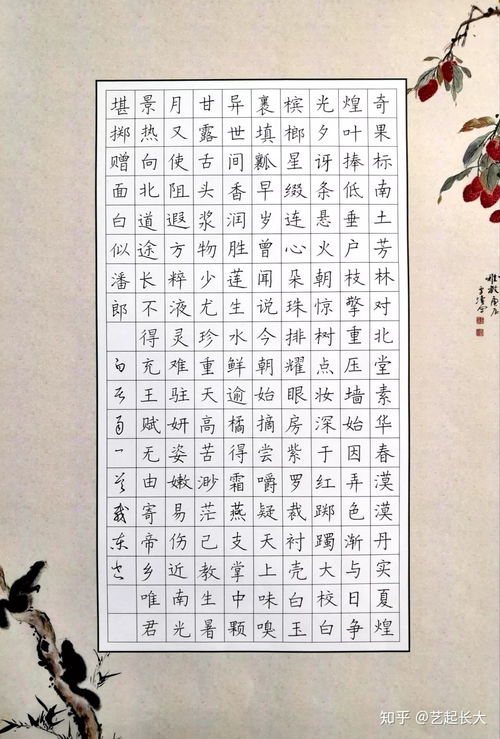 奇果标南土芳林对北堂素华春漠漠丹实夏煌
煌叶捧低垂户枝擎重压墙始因弄色渐与日争
光夕讶条悬火朝惊树点妆深于红踯躅大校白
槟榔星缀连心朵珠排耀眼房紫罗裁衬壳白玉
裹填瓤早岁曾闻说今朝始摘尝嚼疑天上味嗅
异世间香润胜莲生水鲜逾橘得霜燕支掌中颗
甘露舌头浆物少尤珍重天高苦渺茫已教生暑
月又使阻遐方粹液灵难驻妍姿嫩易伤近南光
景热向北道途长不得充王赋无由寄帝乡唯君
堪掷赠面白似潘郎 白居易一首 东书
知乎 @艺起长大